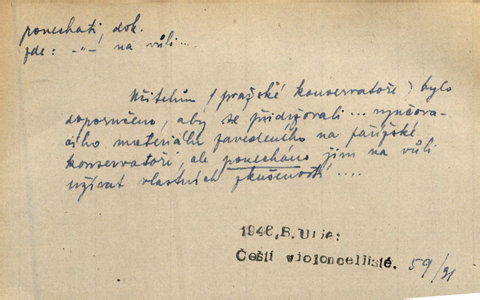 ponechati, dok.
zde: -"- na vůli...
Učitelům (pražské konservatoře) bylo
doporučeno, aby se přidržovali ... vyučova-
cího materiálu zavedeného na pařížské
konservatoři, ale ponecháno jim na vůli
užívat vlastních zkušeností ....
1946, B. Urie:
Čeští violoncellisté. 59/31